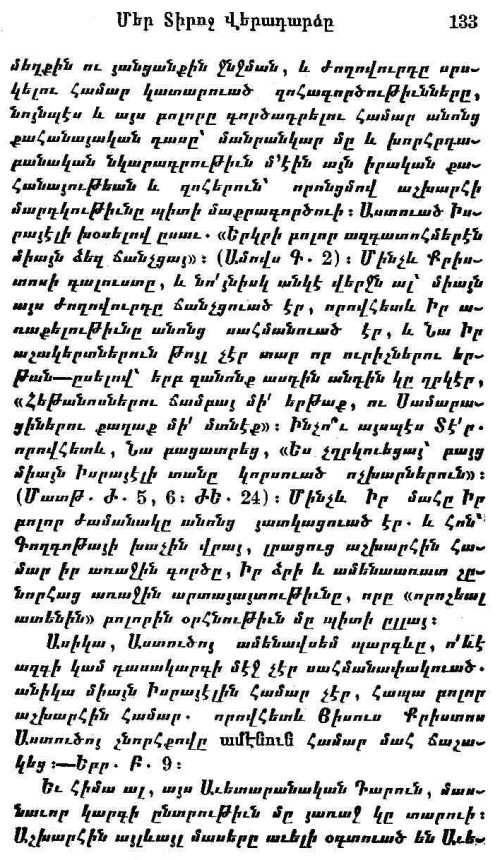 Մեր Տիրոջ Վերադարձը 133
մեղքին ու յանցանքին ջնջման, և ժողովուրդը սրս-
կելու համար կատարուած զոհագործութիւնները,
նոյնպէս և այս բոլորը գործադրելու համար անոնց
քահանայական դասը՝ մանրանկար մը և խորհրդա-
բանական նկարագրութիւն մ՚էին այն իրական քա-
հանայութեան և զոհերուն՝ որոնցմով աշխարհի
մարդկութիւնը պիտի մաքրագործուի։ Աստուած Իս-
րայէլի խօսելով ըսաւ. «Երկրի բոլոր ազգատոհմերէն
միայն ձեզ ճանչցայ»։ (Ամովս Գ. 2)։ Մինչև Քրիս-
տոսի գալուստը, և նո՛յնիսկ անկէ վերջն ալ՝ միայն
այս ժողովուրդը ճանչցուած էր, որովհետև Իր ա-
ռաքելութիւնը անոնց սահմանուած էր, և Նա Իր
աշակերտներուն թոյլ չէր տար որ ուրիշներու եր-
թան—ըսելով՝ երբ զանոնք ասդին անդին կը ղրկէր,
«Հեթանոսներու ճամբայ մի՛ երթաք, ու Սամարա-
ցիներու քաղաք մի՛ մտնէք»։ Ինչո՞ւ այսպէս Տէ՛ր.
որովհետև, Նա բացատրեց, «Ես չղրկուեցայ՝ բայց
միայն Իսրայէլի տանը կորսուած ոչխարներուն»։
(Մատթ. Ժ. 5, 6։ ԺԵ. 24)։ Մինչև Իր մահը Իր
բոլոր ժամանակը անոնց յատկացուած էր. և Հոն՝
Գողգոթայի խաչին վրայ, լրացուց աշխարհին հա-
մար իր առաջին գործը, Իր ձրի և ամենառատ շը-
նորհաց առաջին արտայայտութիւնը, որը «որոշեալ
ատենին» բոլորին օրհնութիւն մը պիտի ըլլայ։
Ասիկա, Աստուծոյ ամենավսեմ պարգևը, ո՛ևէ
ազգի կամ դասակարգի մէջ չէր սահմանափակուած.
անիկա միայն Իսրայէլին համար չէր, հապա բոլոր
աշխարհին համար. որովհետև Յիսուս Քրիստոս
Աստուծոյ շնորհքովը ամէնուն համար մահ ճաշա-
կեց։—Եբր. Բ. 9։
Եւ հիմա ալ, այս Աւետարանական Դարուն, մաս-
նաւոր կարգի ընտրութիւն մը յառաջ կը տարուի։
Աշխարհին այլևայլ մասերը աւելի օգտուած են Աւե-